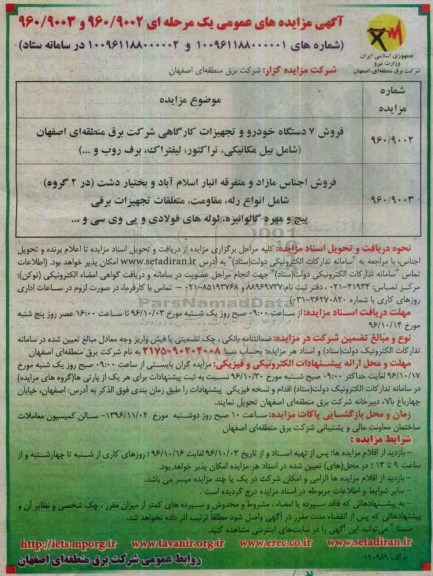 آگهی مزایده های عمومی یک مرحله ای ۹۶۰/۹۰۰۲ و ۹۶۰/۹۰۰۳
(شماره های ۱۰۰۹۶۱۱۸۸۰۰۰۰۰۱ و ۱۰۰۹۶۱۱۸۸۰۰۰۰۰۲ در سامانه ستاد)
جمهوری اسلامی ایران
وزارت نیرو
شرکت برق منطقه‌ای اصفهان
شرکت مزایده گزار: شرکت برق منطقه‌ای اصفهان
شماره مزایده
موضوع مزایده
۹۶۰/۹۰۰۲
فروش ۷ دستگاه خودرو و تجهیزات کارگاهی شرکت برق منطقه‌ای اصفهان
(شامل بیل مکانیکی، تراکتور، لیفتراک، برف روب و ...)
۹۶۰/۹۰۰۳
فروش اجناس مازاد و متفرقه انبار اسلام آباد و بختیار دشت (در ۲ گروه)
شامل انواع رله، مقاومت، متعلقات تجهیزات برقی
پیچ و مهره گالوانیزه، لوله های فولادی و پی وی سی و ...
نحوه دریافت و تحویل اسناد مزایده: کلیه مراحل برگزاری مزایده از دریافت و تحویل اسناد مزایده تا اعلام برنده و تحویل
اجناس، با مراجعه به "سامانه تدارکات الکترونیکی دولت(ستاد)" به آدرس www.setadiran.ir امکان پذیر خواهد بود. (اطلاعات
تماس "سامانه تدارکات الکترونیکی دولت(ستاد)" جهت انجام مراحل عضویت در سامانه و دریافت گواهی امضاء الکترونیکی (توکن):
مرکز تماس: ۴۱۹۳۴-۰۲۱ ، دفتر ثبت نام: ۸۸۹۶۹۷۳۷ و ۸۵۱۹۳۷۶۸-۰۲۱) - تماس با کارفرما، در صورت لزوم در ساعات اداری
روزهای کاری با شماره ۳۶۲۷۰۸۲۰-۰۳۱
مهلت دریافت اسناد مزایده: از ساعت ۰۹:۰۰ صبح روز یک شنبه مورخ ۹۶/۱۰/۰۳ تا ساعت ۱۶:۰۰ عصر روز پنج شنبه
مورخ ۹۶/۱۰/۱۴
نوع و مبالغ تضمین شرکت در مزایده: ضمانتنامه بانکی ، چک تضمینی یا فیش واریز وجه معادل مبالغ تعیین شده در سامانه
تدارکات الکترونیک دولت(ستاد) و اسناد هر مزایده؛ بحساب سیبا ۲۱۷۵۰۹۰۲۰۴۰۰۸ به نام شرکت برق منطقه‌ای اصفهان
مهلت و محل ارائه پیشنهادات الکترونیکی و فیزیکی: مزایده گران بایستی از ساعت ۰۹:۰۰ صبح روز یک شنبه مورخ
۹۶/۱۰/۱۷ لغایت حداکثر ۰۹:۰۰ صبح شنبه مورخ ۹۶/۱۰/۳۰ نسبت به ثبت پیشنهادات برای هر یک از پارتی ها(گروه های مزایده)
در سامانه تدارکات الکترونیک دولت(ستاد) اقدام و نسخه فیزیکی پیشنهادات را طبق زمان بندی فوق الذکر به آدرس: اصفهان، خیابان
چهارباغ بالا، دبیرخانه شرکت برق منطقه‌ای اصفهان تحویل نمایند.
زمان و محل بازگشایی پاکات مزایده: ساعت ۱۰ صبح روز دوشنبه مورخ ۱۳۹۶/۱۱/۰۲- سالن کمیسیون معاملات
ساختمان معاونت مالی و پشتیبانی شرکت برق منطقه‌ای اصفهان
شرایط مزایده :
- بازدید از اقلام مزایده ها؛ پس از تهیه اسناد و از تاریخ ۹۶/۱۰/۰۳ لغایت ۹۶/۱۰/۱۶ ؛ روزهای کاری از شنبه تا چهارشنبه و از
ساعت ۹ تا ۱۳ ؛ در محل(های) تعیین شده در اسناد هر مزایده امکان پذیر خواهد بود.
- بازدید از اقلام مزایده ها الزامی و امکان شرکت در یک یا چند مزایده میسر می باشد.
- سایر شرایط و اطلاعات مربوطه در اسناد مزایده درج گردیده است.
- به پیشنهادهایی که فاقد سپرده یا امضاء، مشروط و مخدوش و سپرده های کمتر از میزان مقرر، چک شخصی و نظایر آن و
پیشنهاداتی که پس از انقضاء مدت مقرر در آگهی واصل شود مطلقا ترتیب اثر داده نخواهد شد.
ضمنا " می توانید این آگهی را در سایت‌های اینترنتی مشاهده کنید.
http://iets.mporg.ir www.tavanir.org.ir www.erec.co.ir www.setadiran.ir
روابط عمومی شرکت برق منطقه‌ای اصفهان
ParsNamadData